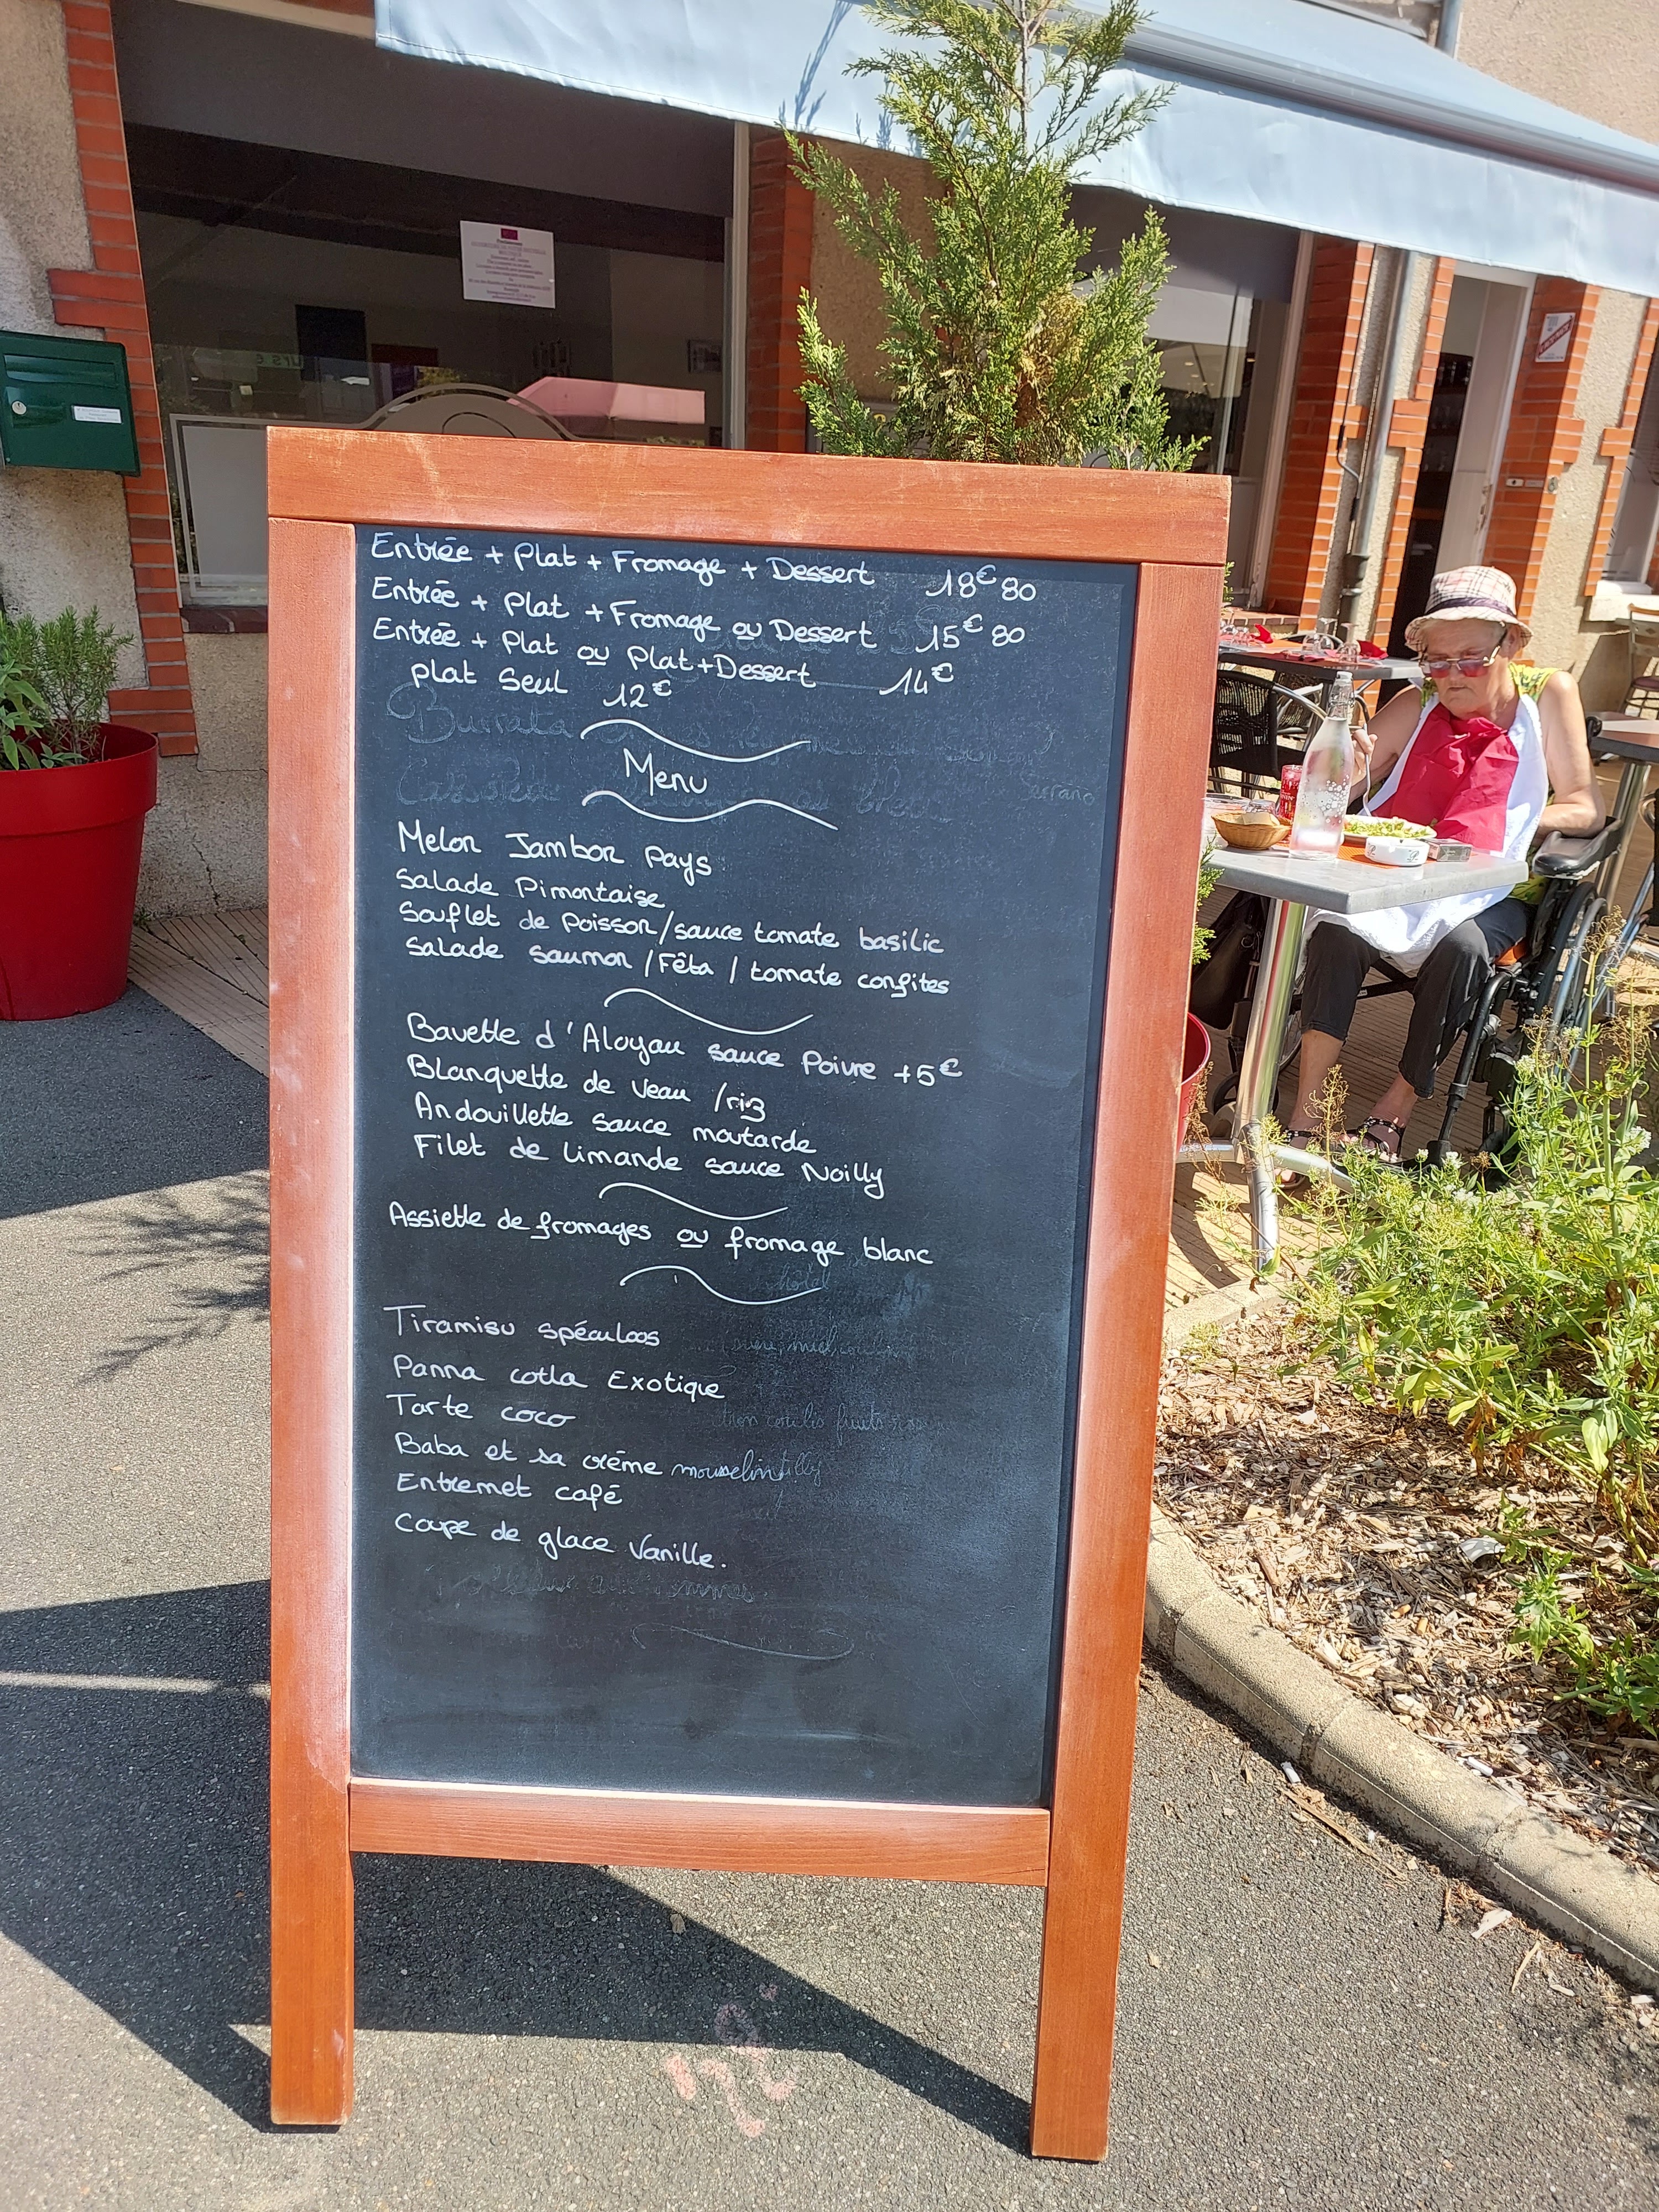 Entrée + Plat + Fromage + Dessert 18€80
Entrée + Plat + Fromage ou Dessert 15€80
Entrée + Plat ou Plat+Dessert 14€
plat seul 12€
Burrata
Menu
Melon Jambon pays
Salade Pimontaise
Souflet de Poisson/sauce tomate basilic
Salade saumon / Fêta / tomate confites
Bavette d'Aloyau sauce Poivre +5€
Blanquette de veau /riz
Andouillette sauce moutarde
Filet de limande sauce Noilly
Assiette de fromages ou fromage blanc
Tiramisu spéculoos
Panna cotta Exotique
Tarte coco
Baba et sa crème mousseline
Entremet café
Coupe de glace Vanille.